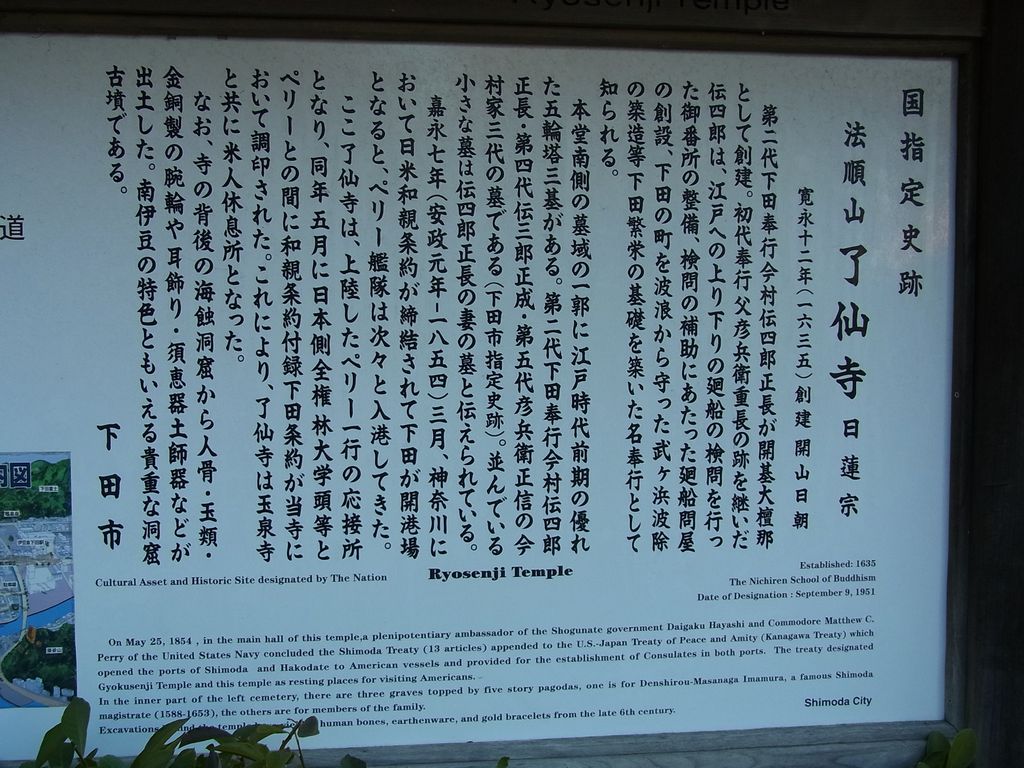 Ryosenji Temple
国指定史跡
法順山 了仙寺 日蓮宗
寛永十二年（一六三五）創建 開山日朝
第二代下田奉行今村伝四郎正長が開基大檀那
として創建。初代奉行父彦兵衛重長の跡を継いだ
伝四郎は、江戸への上り下りの廻船の検問を行っ
た御番所の整備、検問の補助にあたった廻船問屋
の創設、下田の町を波浪から守った武ヶ浜波除
の築造等下田繁栄の基礎を築いた名奉行として
知られる。
本堂南側の墓域の一郭に江戸時代前期の優れ
た五輪塔三基がある。第二代下田奉行今村伝四郎
正長・第四代伝三郎正成・第五代彦兵衛正信の今
村家三代の墓である（下田市指定史跡）。並んでいる
小さな墓は伝四郎正長の妻の墓と伝えられている。
嘉永七年（安政元年−一八五四）三月、神奈川に
おいて日米和親条約が締結されて下田が開港場
となると、ペリー艦隊は次々と入港してきた。
ここ了仙寺は、上陸したペリー一行の応接所
となり、同年五月に日本側全権林大学頭等と
ペリーとの間に和親条約付録下田条約が当寺に
おいて調印された。これにより、了仙寺は玉泉寺
と共に米人休息所となった。
なお、寺の背後の海蝕洞窟から人骨・玉類・
金銅製の腕輪や耳飾り・須恵器土師器などが
出土した。南伊豆の特色ともいえる貴重な洞窟
古墳である。
下田市
道
図
Cultural Asset and Historic Site designated by The Nation
Ryosenji Temple
Established: 1635
The Nichiren School of Buddhism
Date of Designation : September 9, 1951
On May 25, 1854 , in the main hall of this temple,a plenipotentiary ambassador of the Shogunate government Daigaku Hayashi and Commodore Matthew C.
Perry of the United States Navy concluded the Shimoda Treaty (13 articles) appended to the U.S.-Japan Treaty of Peace and Amity (Kanagawa Treaty) which
opened the ports of Shimoda and Hakodate to American vessels and provided for the establishment of Consulates in both ports. The treaty designated
Gyokusenji Temple and this temple as resting places for visiting Americans.
In the inner part of the left cemetery, there are three graves topped by five story pagodas, one is for Denshirou-Masanaga Imamura, a famous Shimoda
magistrate (1588-1653), the others are for members of the family.
Excavations the temple human bones, earthenware, and gold bracelets from the late 6th century.
Shimoda City